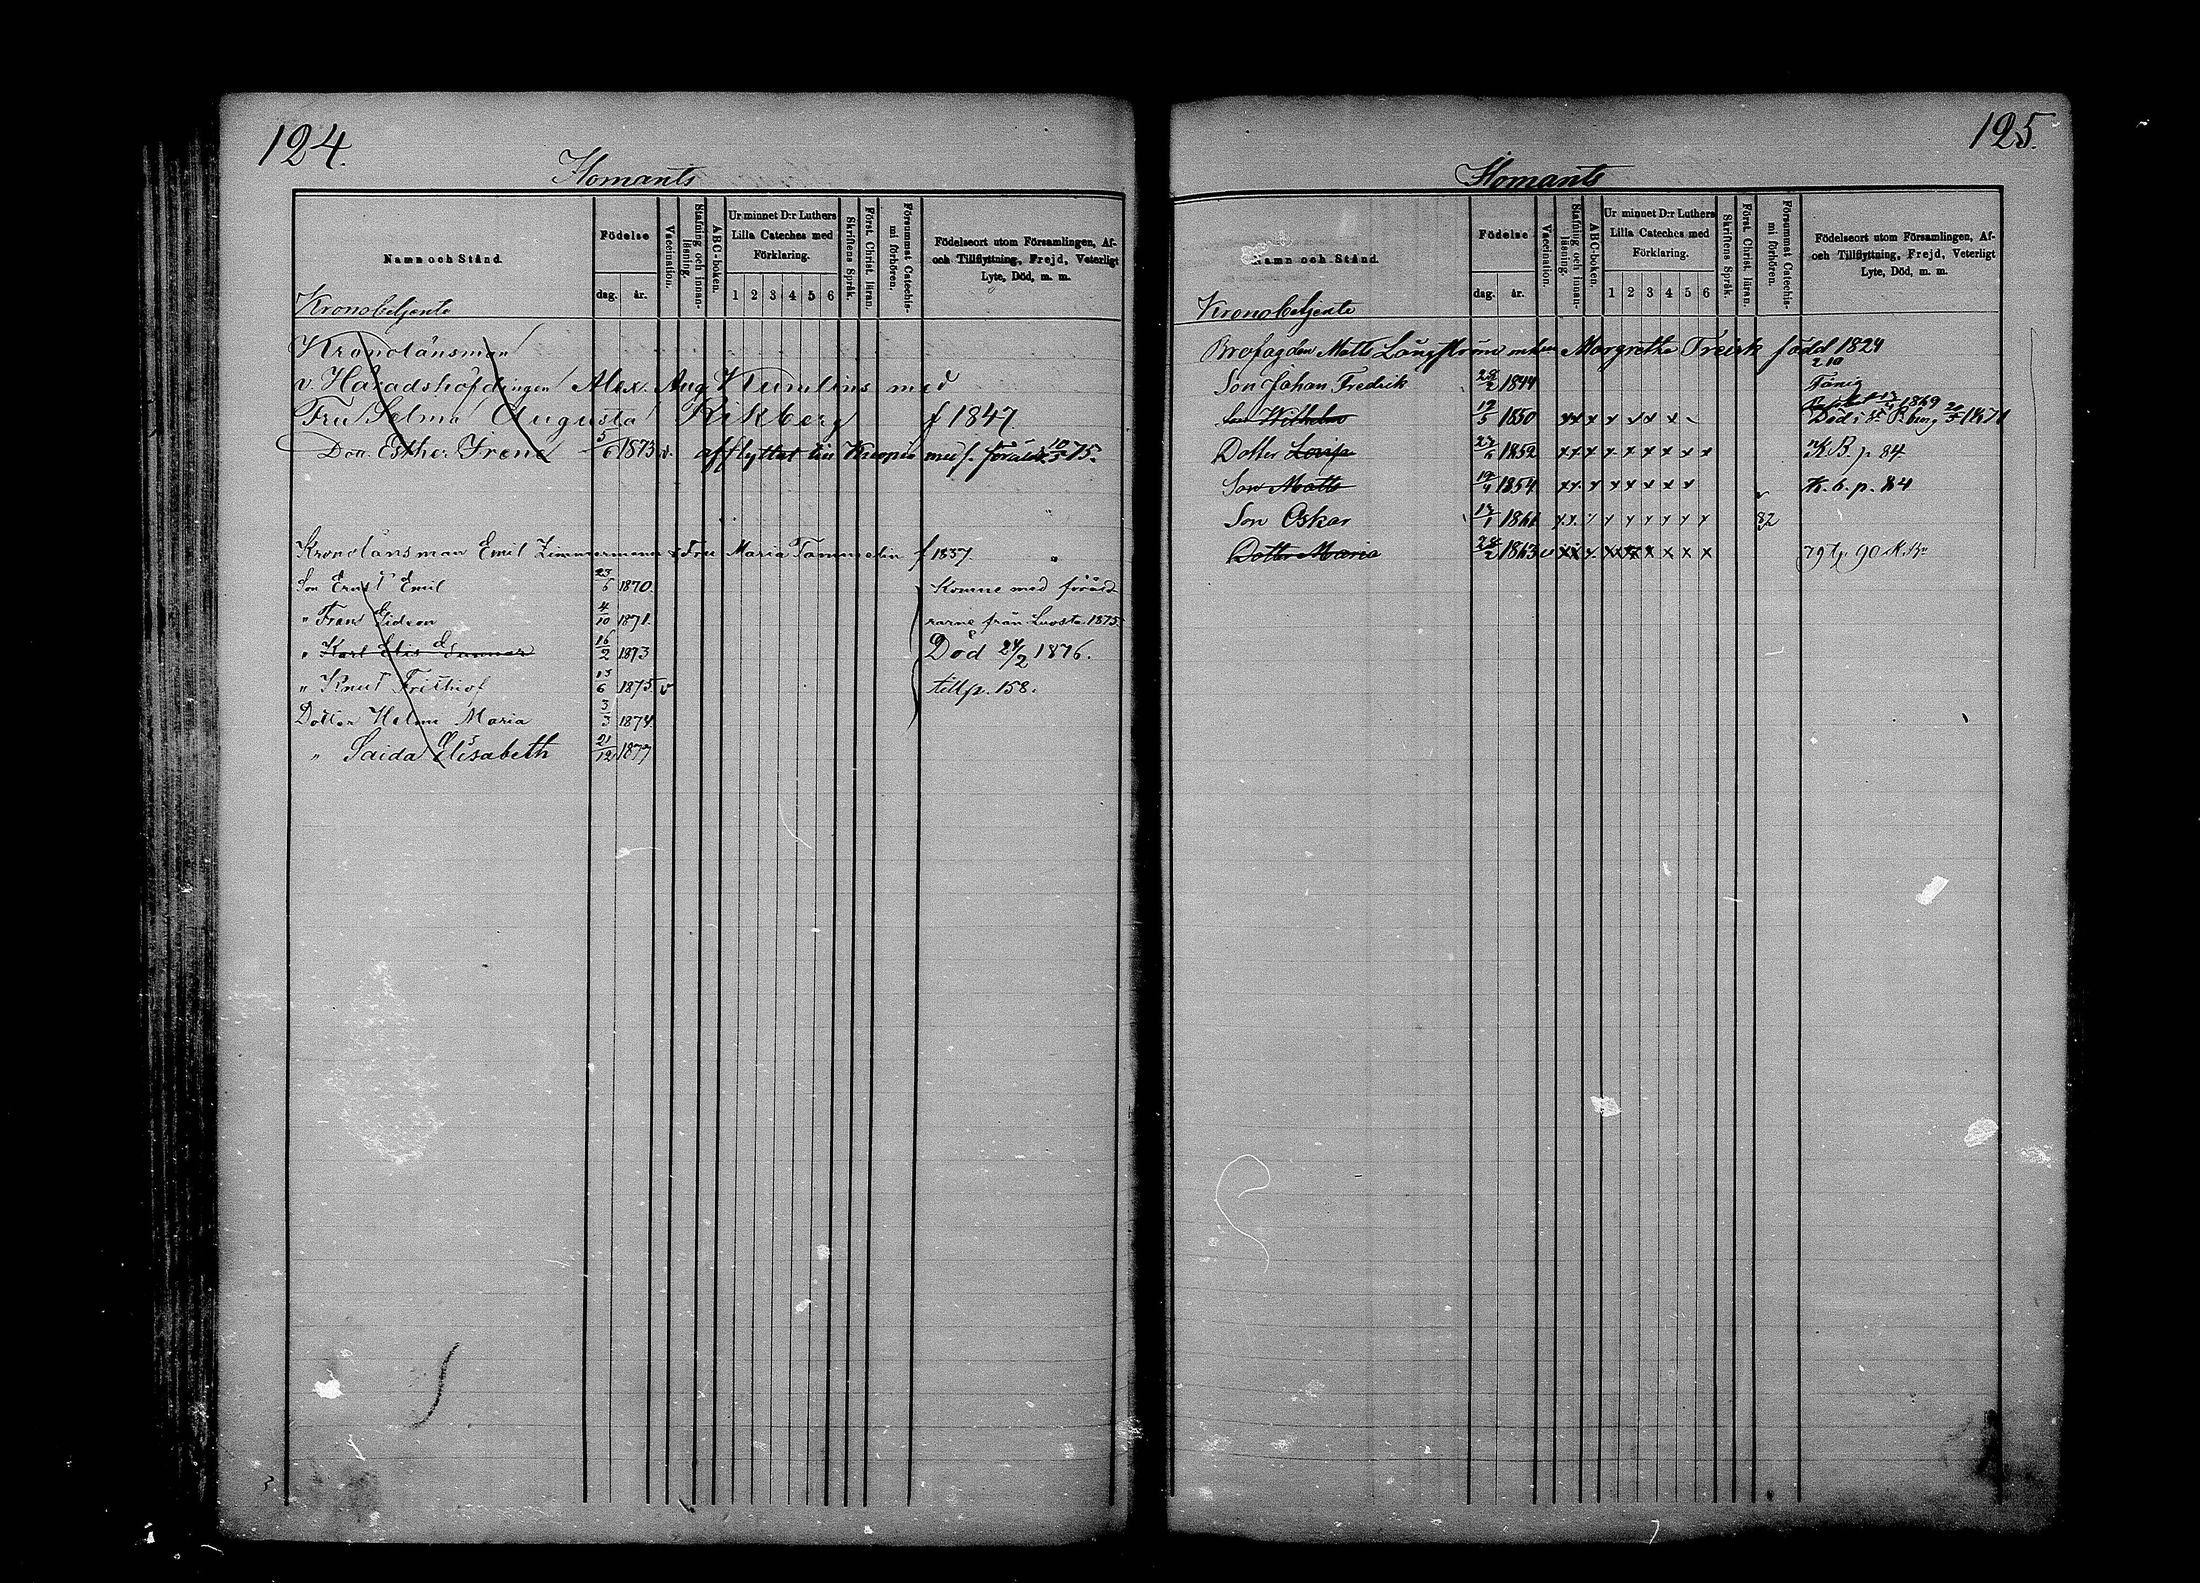 124.
Homants
Namn och Stånd.
Födelse
dag. år.
Vaccination.
Stafning och innanläsning.
ABC-boken.
Ur minnet D:r Luthers Lilla Cateches med Förklaring.
1 2 3 4 5 6
Skriftens Språk.
Först. Christ. läran.
Försummat Catechismi förhören.
Födelseort utom Församlingen, Af- och Tillflyttning, Frejd, Veterligt Lyte, Död, m. m.
Kronobetjente
Kronolänsman
v. Häradshöfdingen Alex. Aug. Kumlins med
Fru Selma Augusta Rikberg f 1847.
Dott. Esther Irene 5/6 1873 v. afflyttat till Kuopio med s. föräld. 10/3 75.
Kronolänsman Emil Zimmermann & Fru Maria Tammelin f 1837.
Son Ernst Emil 23/6 1870. Komne med föräld-
" Frans Gideon 4/10 1871. rarne från 1875.
" Karl Elis Gunnar 16/2 1873 Död 24/2 1876.
" Knut Frithiof 13/6 1875 v till p. 158.
Dotter Helmi Maria 3/3 1874.
" Saida Elisabeth 21/12 1877
125.
Homants
Namn och Stånd.
Födelse
dag. år.
Vaccination.
Stafning och innanläsning.
ABC-boken.
Ur minnet D:r Luthers Lilla Cateches med Förklaring.
1 2 3 4 5 6
Skriftens Språk.
Först. Christ. läran.
Försummat Catechismi förhören.
Födelseort utom Församlingen, Af- och Tillflyttning, Frejd, Veterligt Lyte, Död, m. m.
Kronobetjente
Brofogden Matts Långström enkan Margretha Treisk född 1824
2/10
Son Johan Fredrik 28/2 1844 Fånig
Son Wilhelm 19/5 1850 x x x x x x x 1869
Död i St P.burg 1871
Dotter Lovisa 1852 x x x x x x x x x KB. p 84.
Son Matts 19/4 1854 x x x x x x x x K. b. p. 84
Son Oskar 1861 x x x x x x x x x 82
Dotter Maria 28/2 1863 v x x x x x x x x x 79 t. p 90 K. Bn